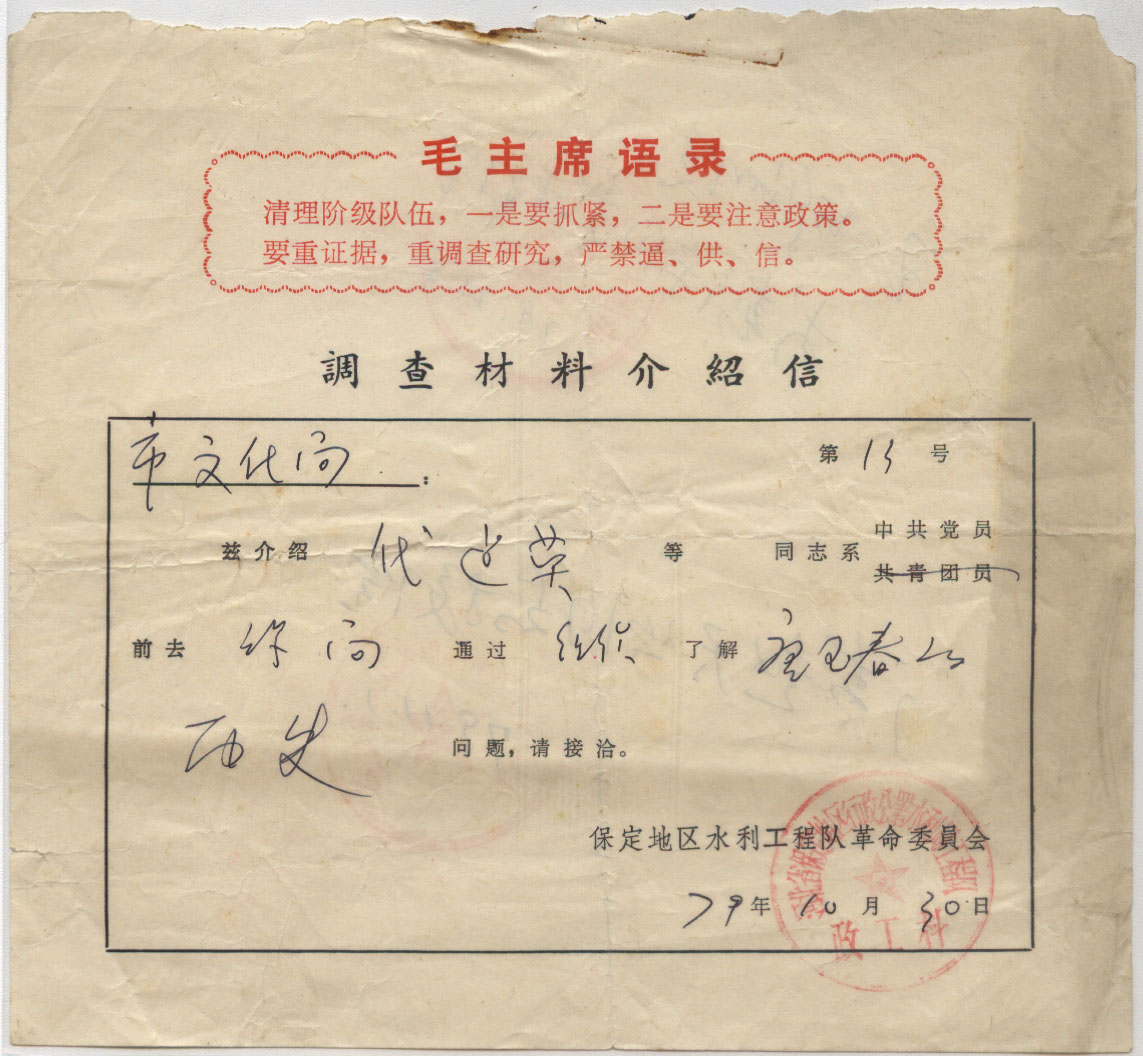 毛主席语录
清理阶级队伍，一是要抓紧，二是要注意政策。
要重证据，重调查研究，严禁逼、供、信。
調查材料介紹信
市文化局： 第 13 号
兹介绍 代 英 等 同志系 中共党员
共青团员
前去 你局 通过 组织 了解 春
历史 问题，请接洽。
保定地区水利工程队革命委員会
79年10月30日
河北省保定地区行政公署水利工程队
政工科